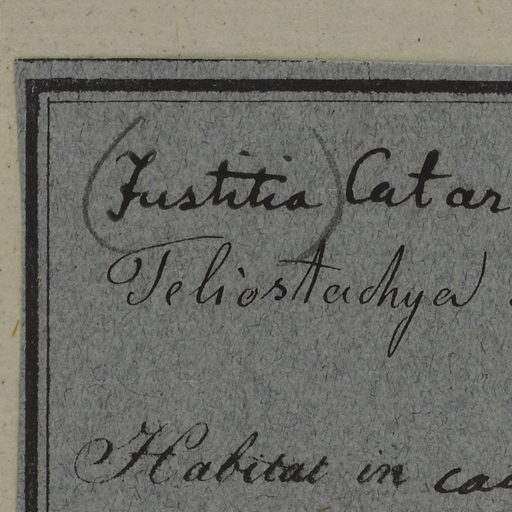 (Justitia) Catar
Teliostachya
Habitat in cae